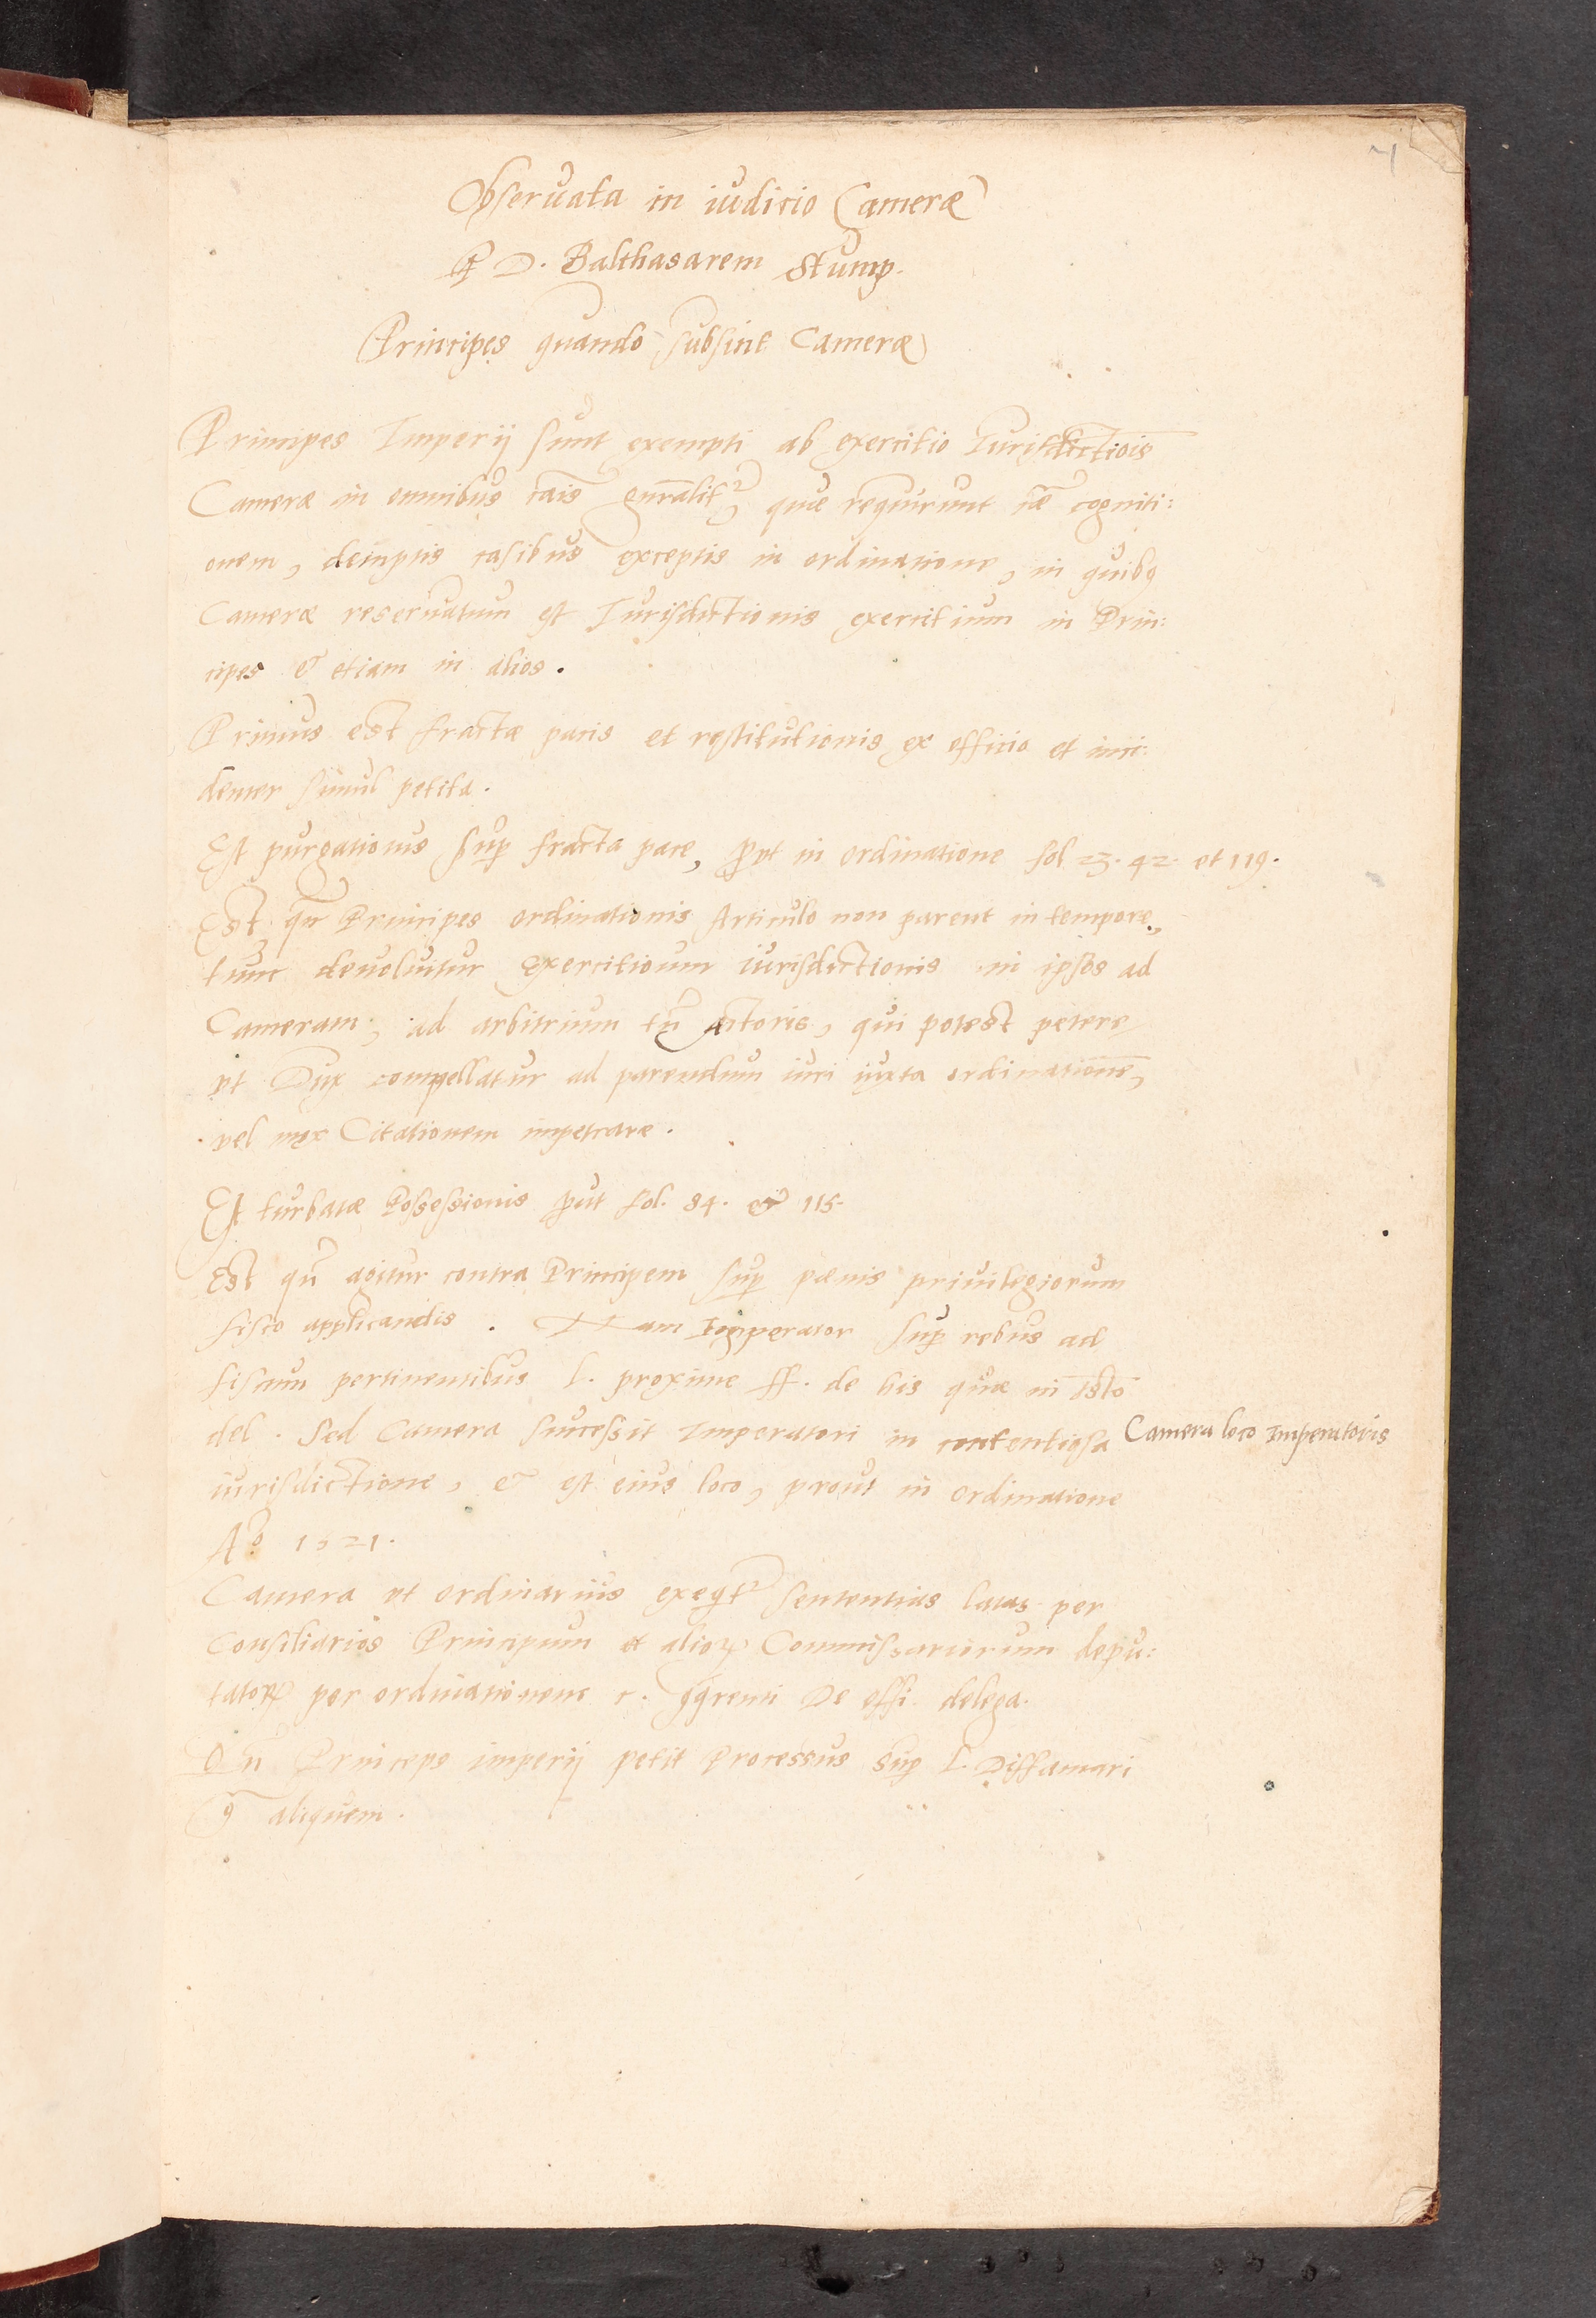 7
Observata in iudicio Cameræ
P D. Balthasarem Stump.
Principes quando subsint Cameræ
Principes Imperij sunt exempti ab exercitio Jurisdictiōis
Cameræ in omnibus cais gnralitr quæ requirunt cæ cogniti:
onem, demptis casibus exceptis in ordinatione, in quibq
Cameræ reseruatum est Jurisdictionis exercitium in Prin:
cipes & etiam in alios.
Primus est fractæ pacis et restitutionis ex officio et inci:
denter simul petita.
Est purgationis sup fracta pace, put in ordinatione fol. 23. 42. et 119.
Est qn Principes ordinationis Articulo non parent in tempore,
tunc deuoluitur exercitioum iurisdictionis in ipsos ad
Cameram, ad arbitrium tn Actoris, qui potest petere
vt Dux compellatur ad parendum iuri iuxta ordinationē,
vel mox Citationem impetrare.
Est turbatæ Possessionis put fol. 84. & 115.
Est qn agitur contra Principem sup pænis priuilegiorum
fisco applicandis. Nam Imperator sup rebus ad
fiscum pertinentibus l. proxime ff. de his quæ in tsto
del. Sed Camera successit Imperatori in contentiosa
Camera loco Imperatoris
iurisdictione, & est eius loco, prout in ordinatione
Ao 1521.
Camera vt ordinarius exeqtr sententias latas per
Consiliarios Principum et alioꝝ Commissariorum depu:
tatoꝝ per ordinationem c. De offi. delega.
Qn Princeps imperij petit Processus sup l. Diffamari
aliquem.